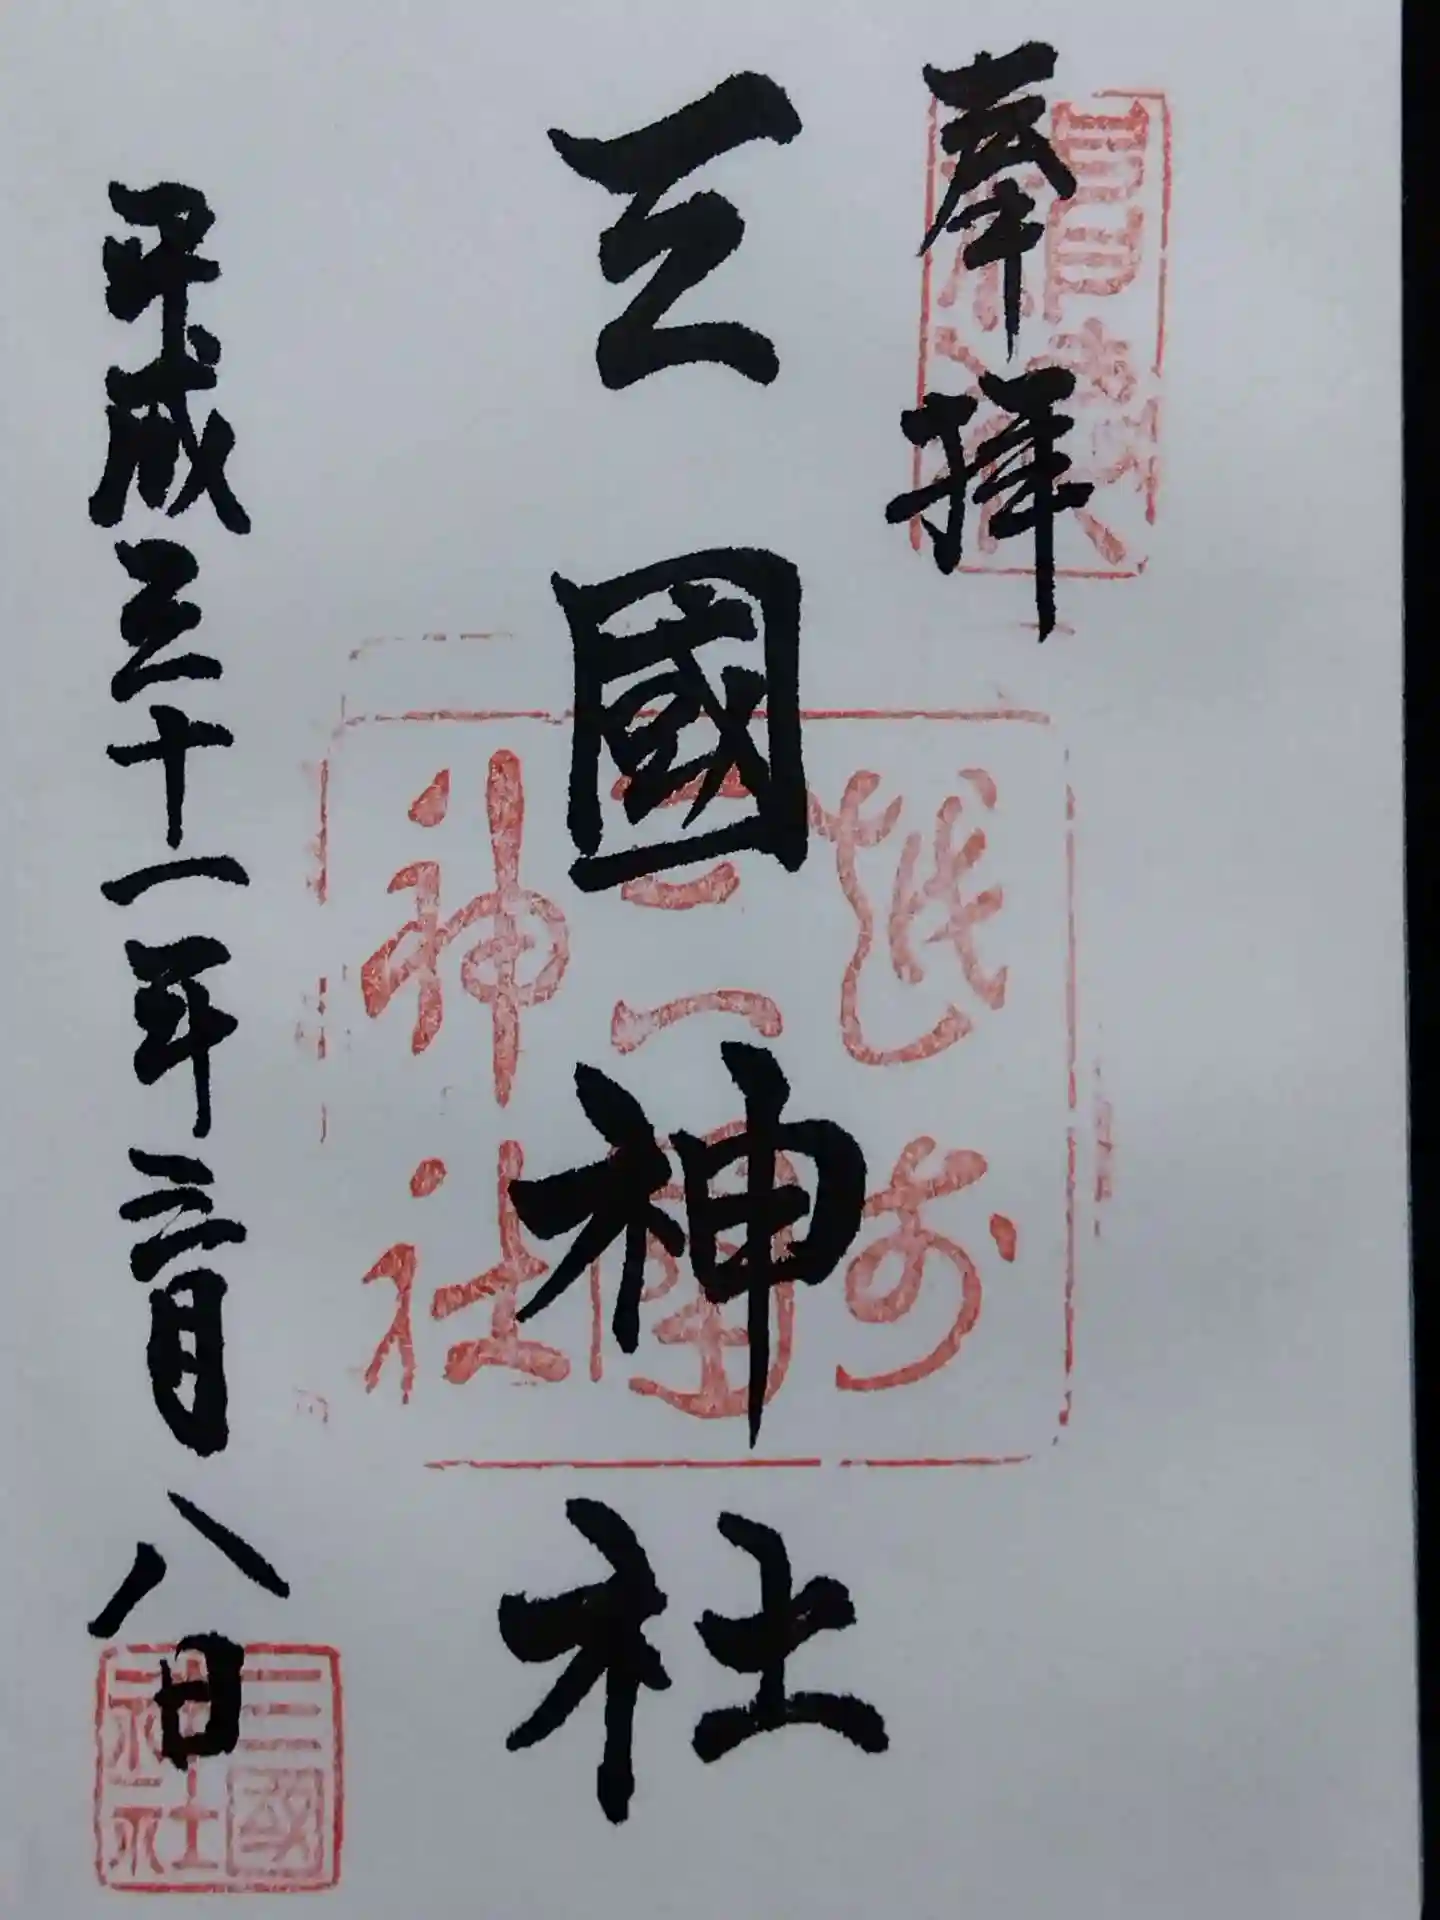 奉拝
三國神社
平成三十一年三月八日
越前
三國
神社
三國
神社